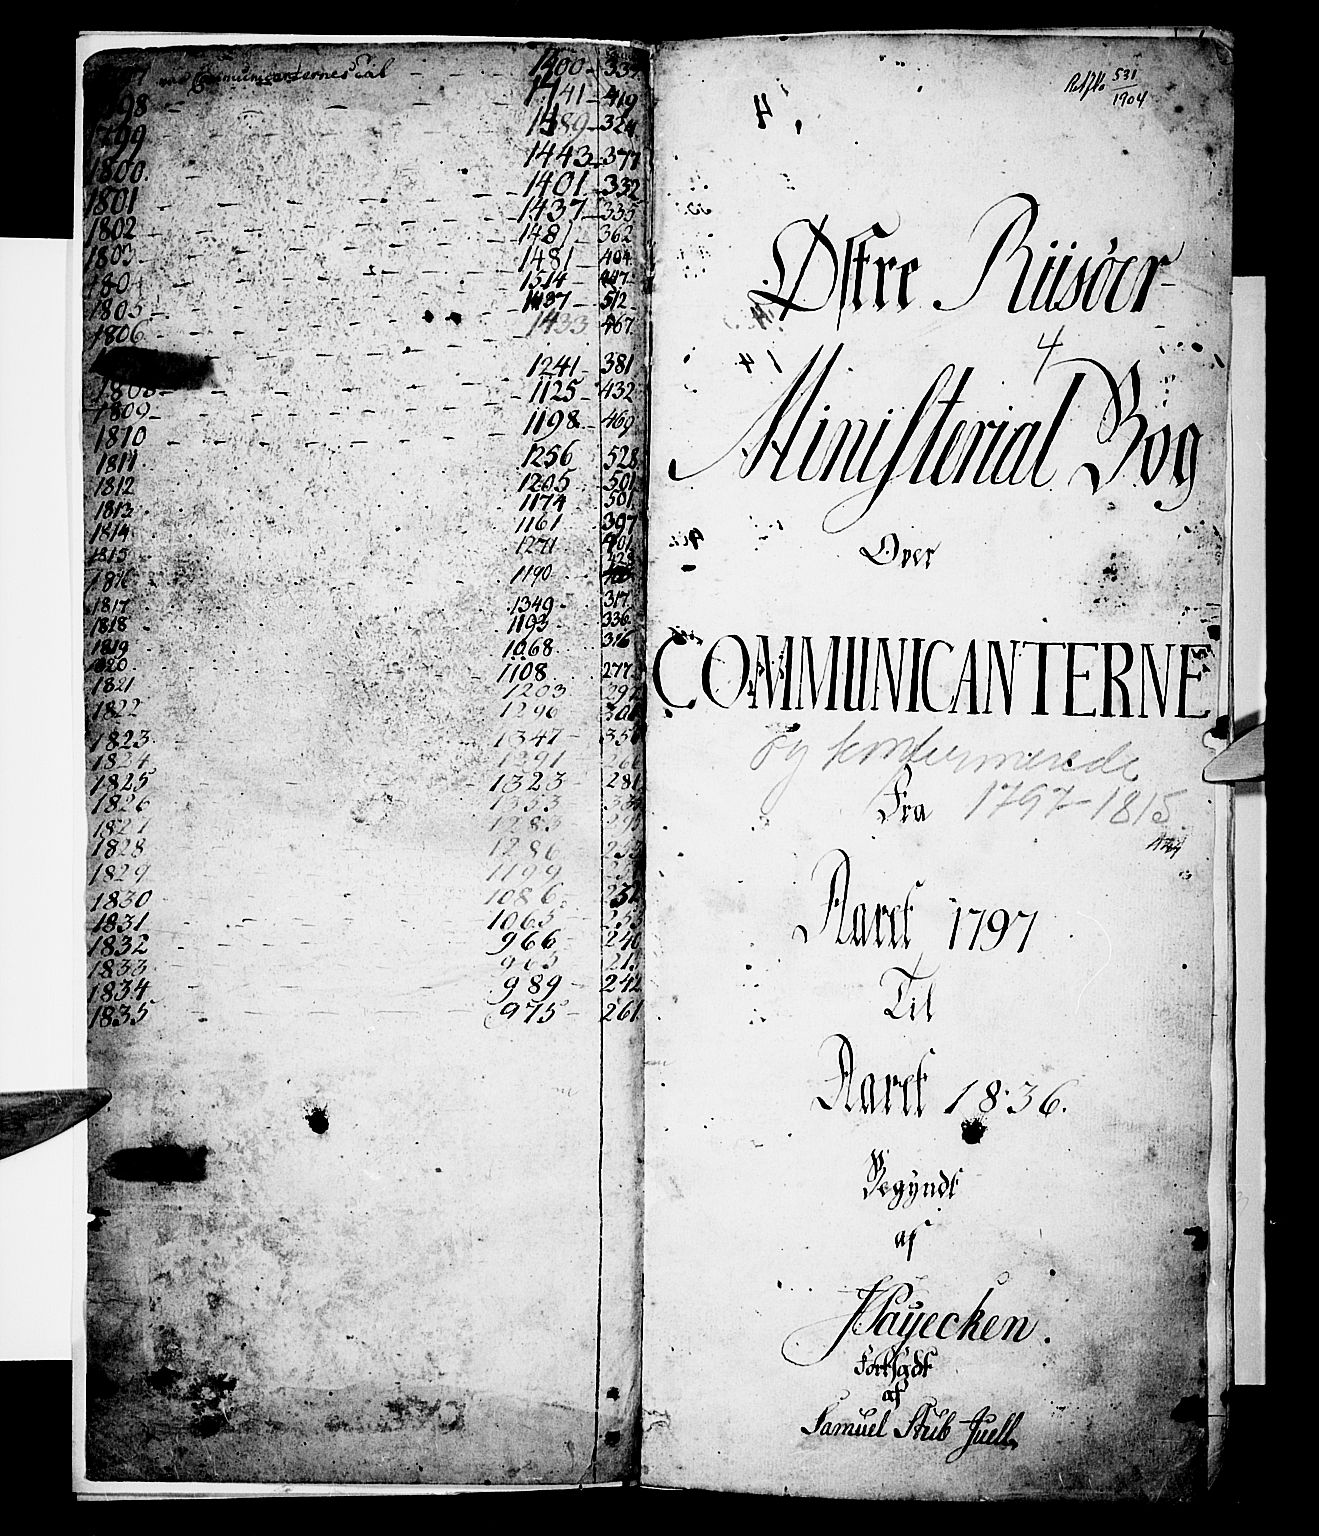 var Communicanternes Tal - - 1400 - 337
1798 - - 1441 - 419
1799 - - 1489 - 324
1800. - - 1443 - 377
1801 - - 1401 - 332
1802 - - 1437 - 335
1803 - - 1481 - 362
1804 - - 1481 - 404
1805 - - 1514 - 447
1806 - - 1437 - 512
1433 - 467
1808 - - 1241 - 381
1809 - - 1125 - 432
1810 - - 1198 - 469
1811 1256 528
1812 1205 501
1813 1174 501
1814 1161 397
1815 1271 401
1816 1190 428
1817 1349 317
1818 1193 336
1819 1068 316
1820 1108 277
1821 1203 292
1822 1296 301
1823 1347 - 356
1824 1291 266
1825 1323 281
1826 1333
1827 1283
1828 1286
1829 1199
1830 1086
1831 1065
1832 966 - 240
1833 963
1834 989 - 242
1835 975 - 261
4
Østre Riisöer
4
Ministerial Bog
Over
COMMUNICANTERNE
og konfirmerede
Fra 1797-1815
Aaret 1797
Til
Aaret 1836.
Begyndt
af
Hayecken.
Fortsydt
af
Samuel Stub Juell
531
1904